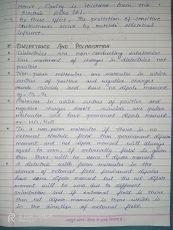 Hence, Cavity is shielded from the
electric field (E).
By these effect, The protection of sensitive
instruments occur by outside electrical
influence.
Dielectrics And Polarisation
Dielectrics are non-conducting substances.
Free movement of charge in dielectrics not
possible.
Non-polar molecules are molecule in which
centres of positive and negative charges
coincide and have no dipole moment
Molecule in which centres of positive and
negative charge doesn't coincide are polar
molecules and have permanent dipole moment
In a non polar molecules if there is no
external electric field then permanent dipole
moment and net dipole moment will always
equal to zero. If externally field is given
then there will be some dipole moment
A dielectric with polar molecules in the
absence of external field permanent dipoles
have some dipole moment but the net dipole
moment will be zero due to different
orientation and if external field is there
then net dipole moment is there which is
in the direction of external field.